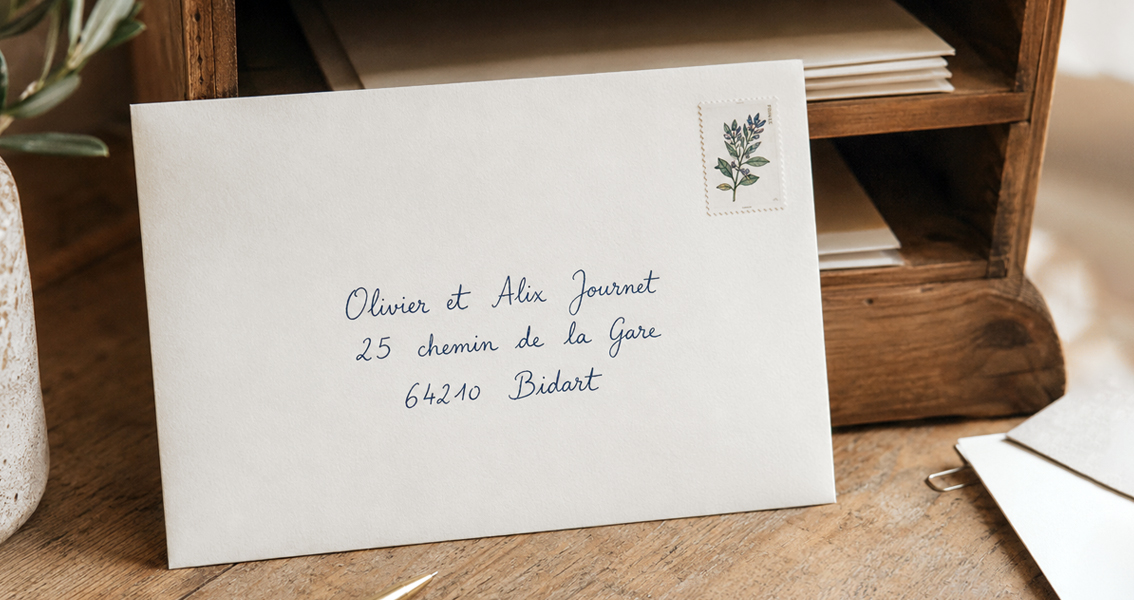 Olivier et Alix Journet
25 chemin de la Gare
64210 Bidart